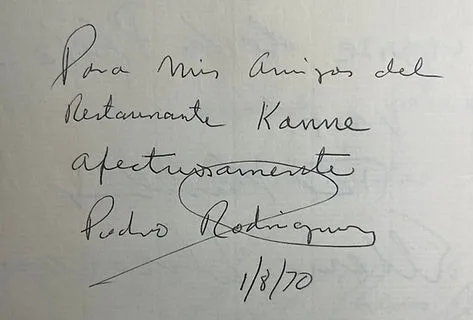 Para mis amigos del
Restaurante Kanne
afectuosamente
Pedro Rodriguez
1/8/70